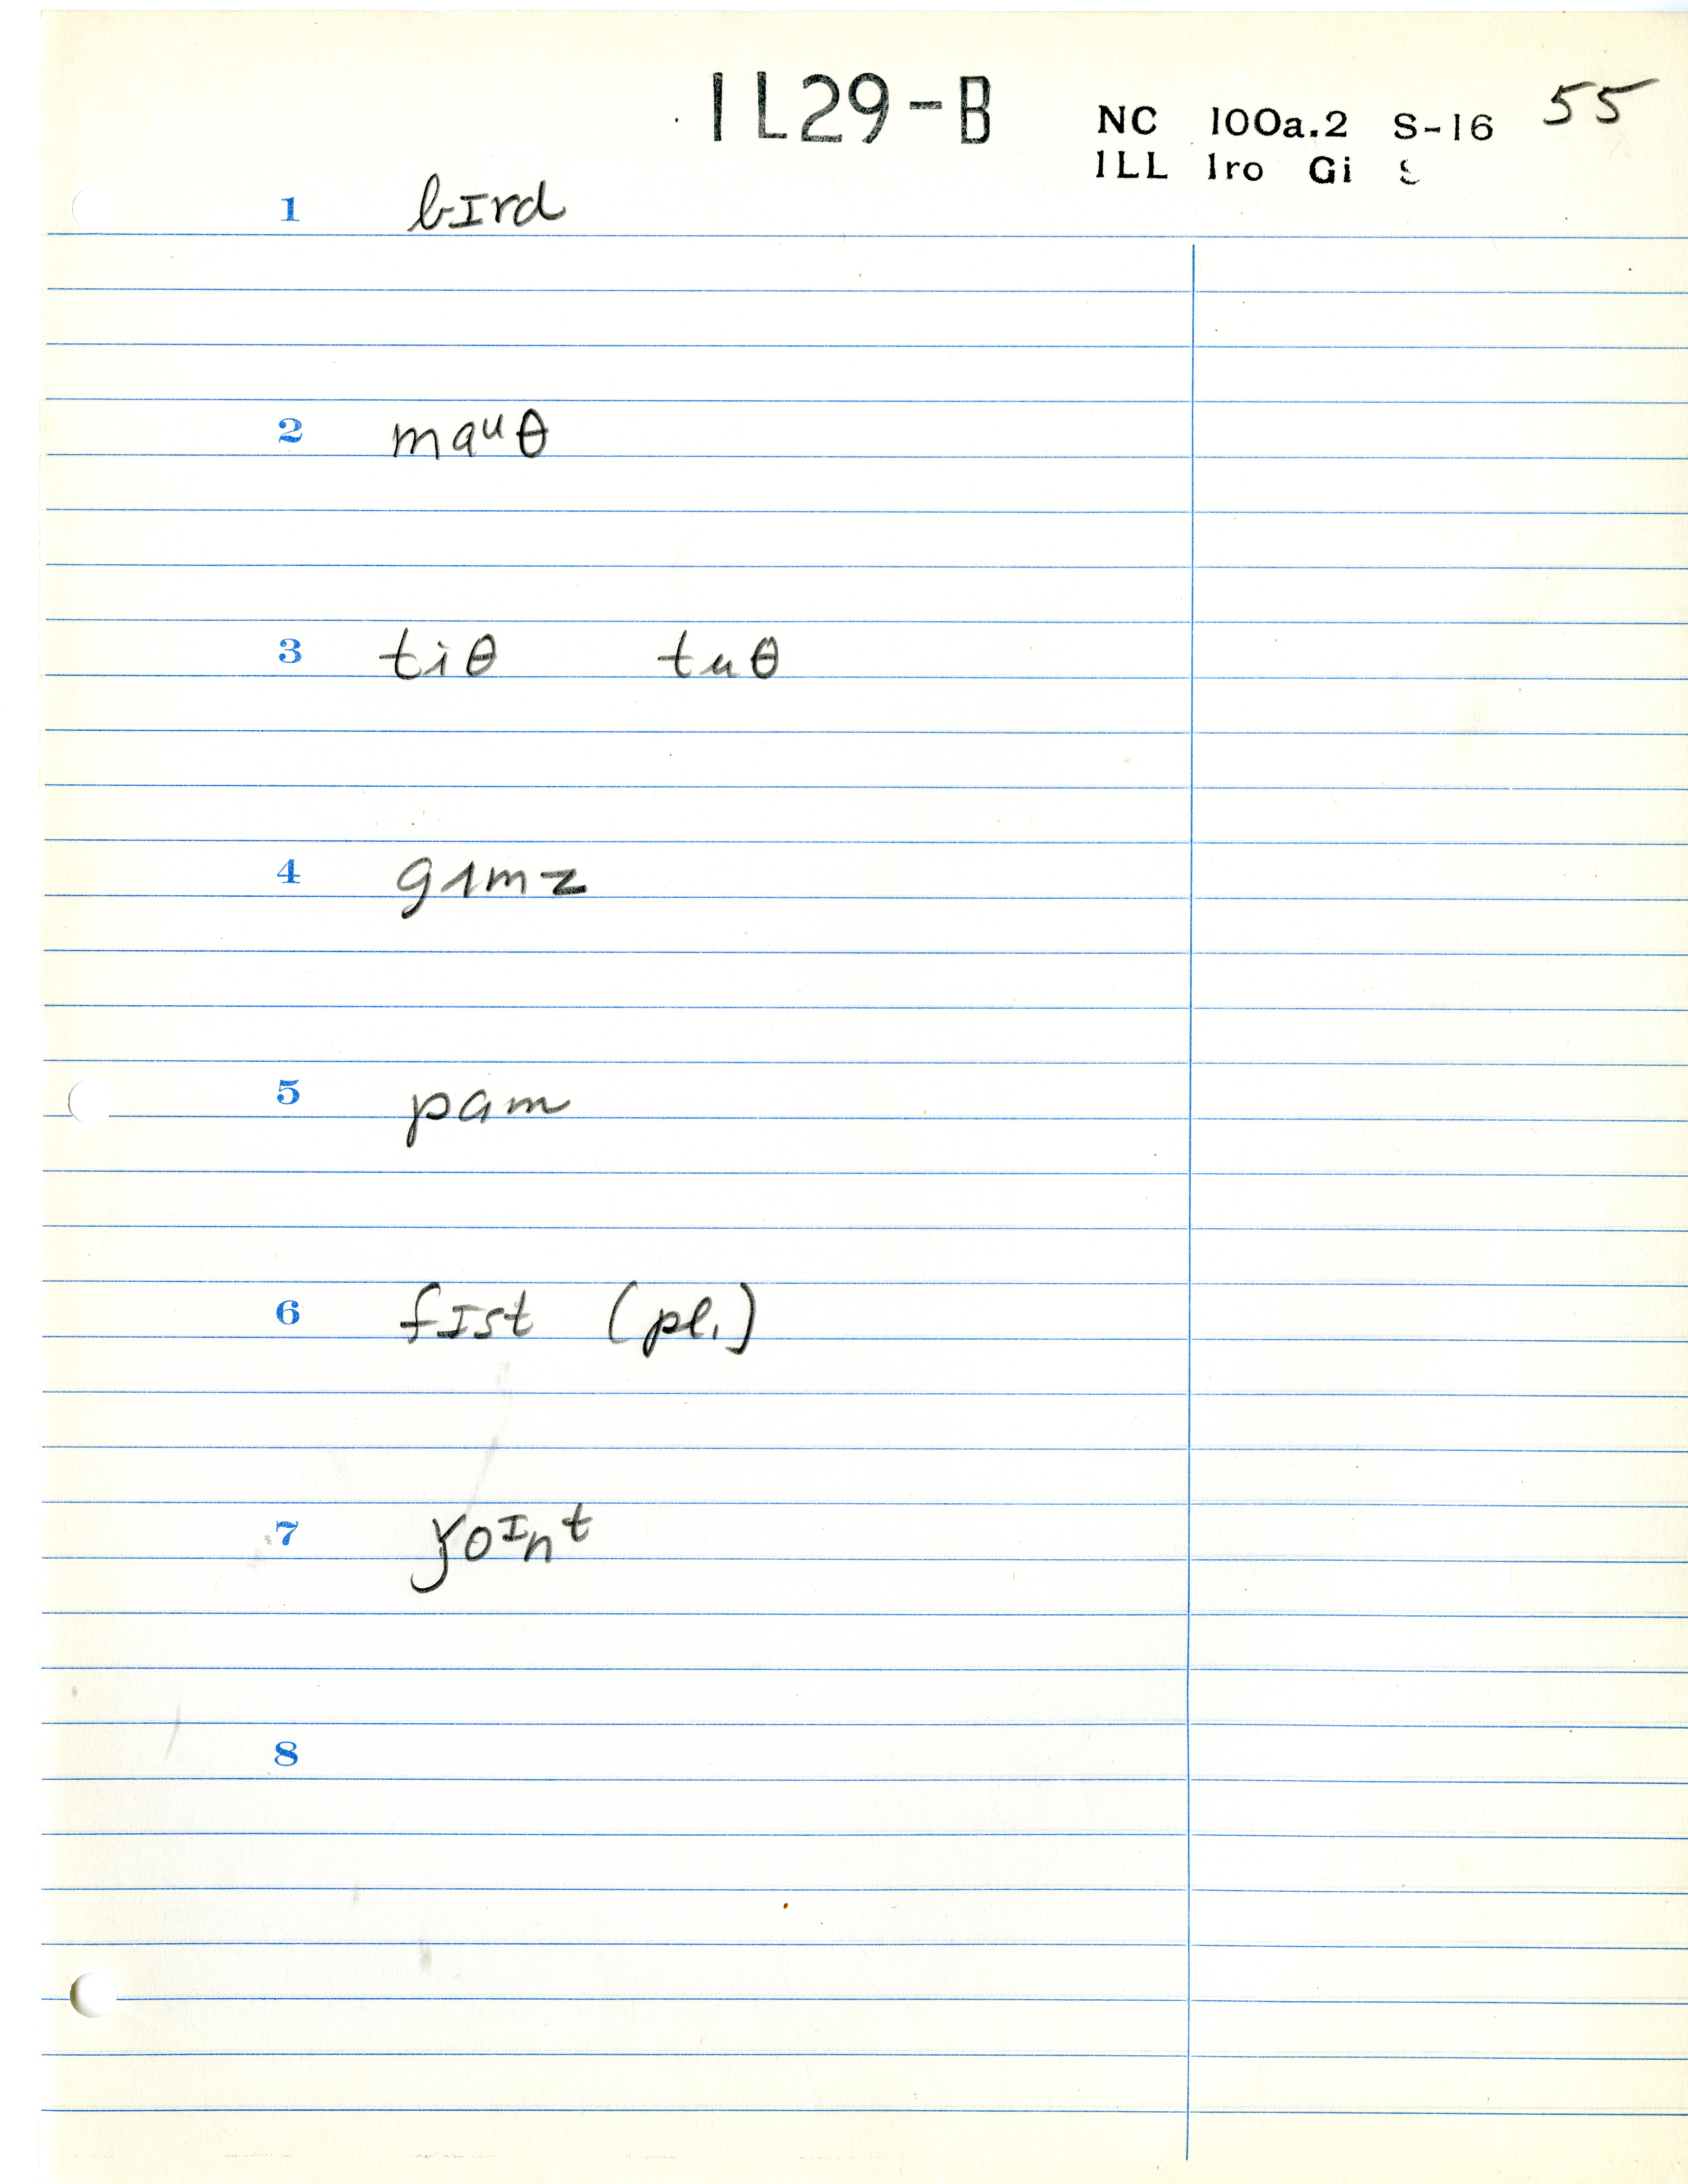 IL29-B
NC 100a.2 S-16 55
ILL Iro Gi S
1 bɪrd
2 maᵘθ
3 tiθ tuθ
4 gʌmz
5 pam
6 fɪst (pl.)
7 ǰoᶦnᵗ
8